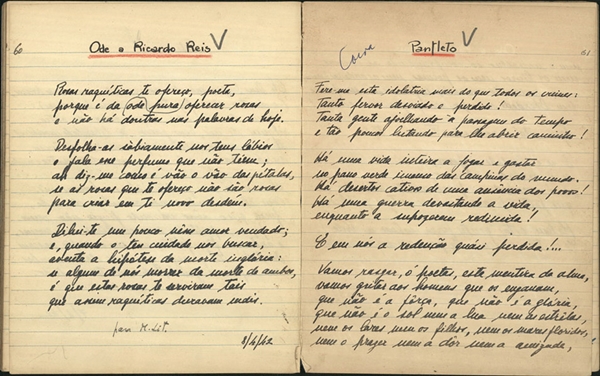 60
Ode a Ricardo Reis V
Rosas raquíticas te ofereço, poeta,
porque é da ode pura oferecer rosas
e não há doutras nas palavras de hoje.
Desfolha-as sabiamente nos teus lábios
e fala
perfume que não têm;
diz-me como é vão o vão das pétalas,
se as rosas que te ofereço não são rosas
para criar em ti novo desdém.
te um pouco nêm amor vendado;
e, quando o teu cuidado nos buscar,
a hipótese da morte inglória:
se algum de nós morrer da morte de ambos,
é que estas rosas te serviram tais
que assim raquíticas duravam mais.
para M. Lit.
8/4/42
61
Panfleto V
Fere-me esta idolatria mais do que todos os crimes:
Tanto fervor desviado e perdido!
Tanta gente ajoelhando à passagem do tempo
e tão poucos lutando para lhe abrir caminho!
Há uma vida inteira a jogar e gastar
no pano verde imenso das campinas do mundo.
Há desertos cativos de uma ausência dos povos!
Há uma guerra devastando a vida,
enquanto a supuserem redimida!
E em nós a redenção quási perdida!...
Vamos rasgar, ó poetas, esta mentira da alma,
vamos gritar aos homens que os enganam,
que não é a fôrça, que não é a glória,
que não é o sol nem a lua nem as estrêlas,
nem os lares nem os filhos, nem os mares floridos,
nem o prazer nem a dor nem a amizade,